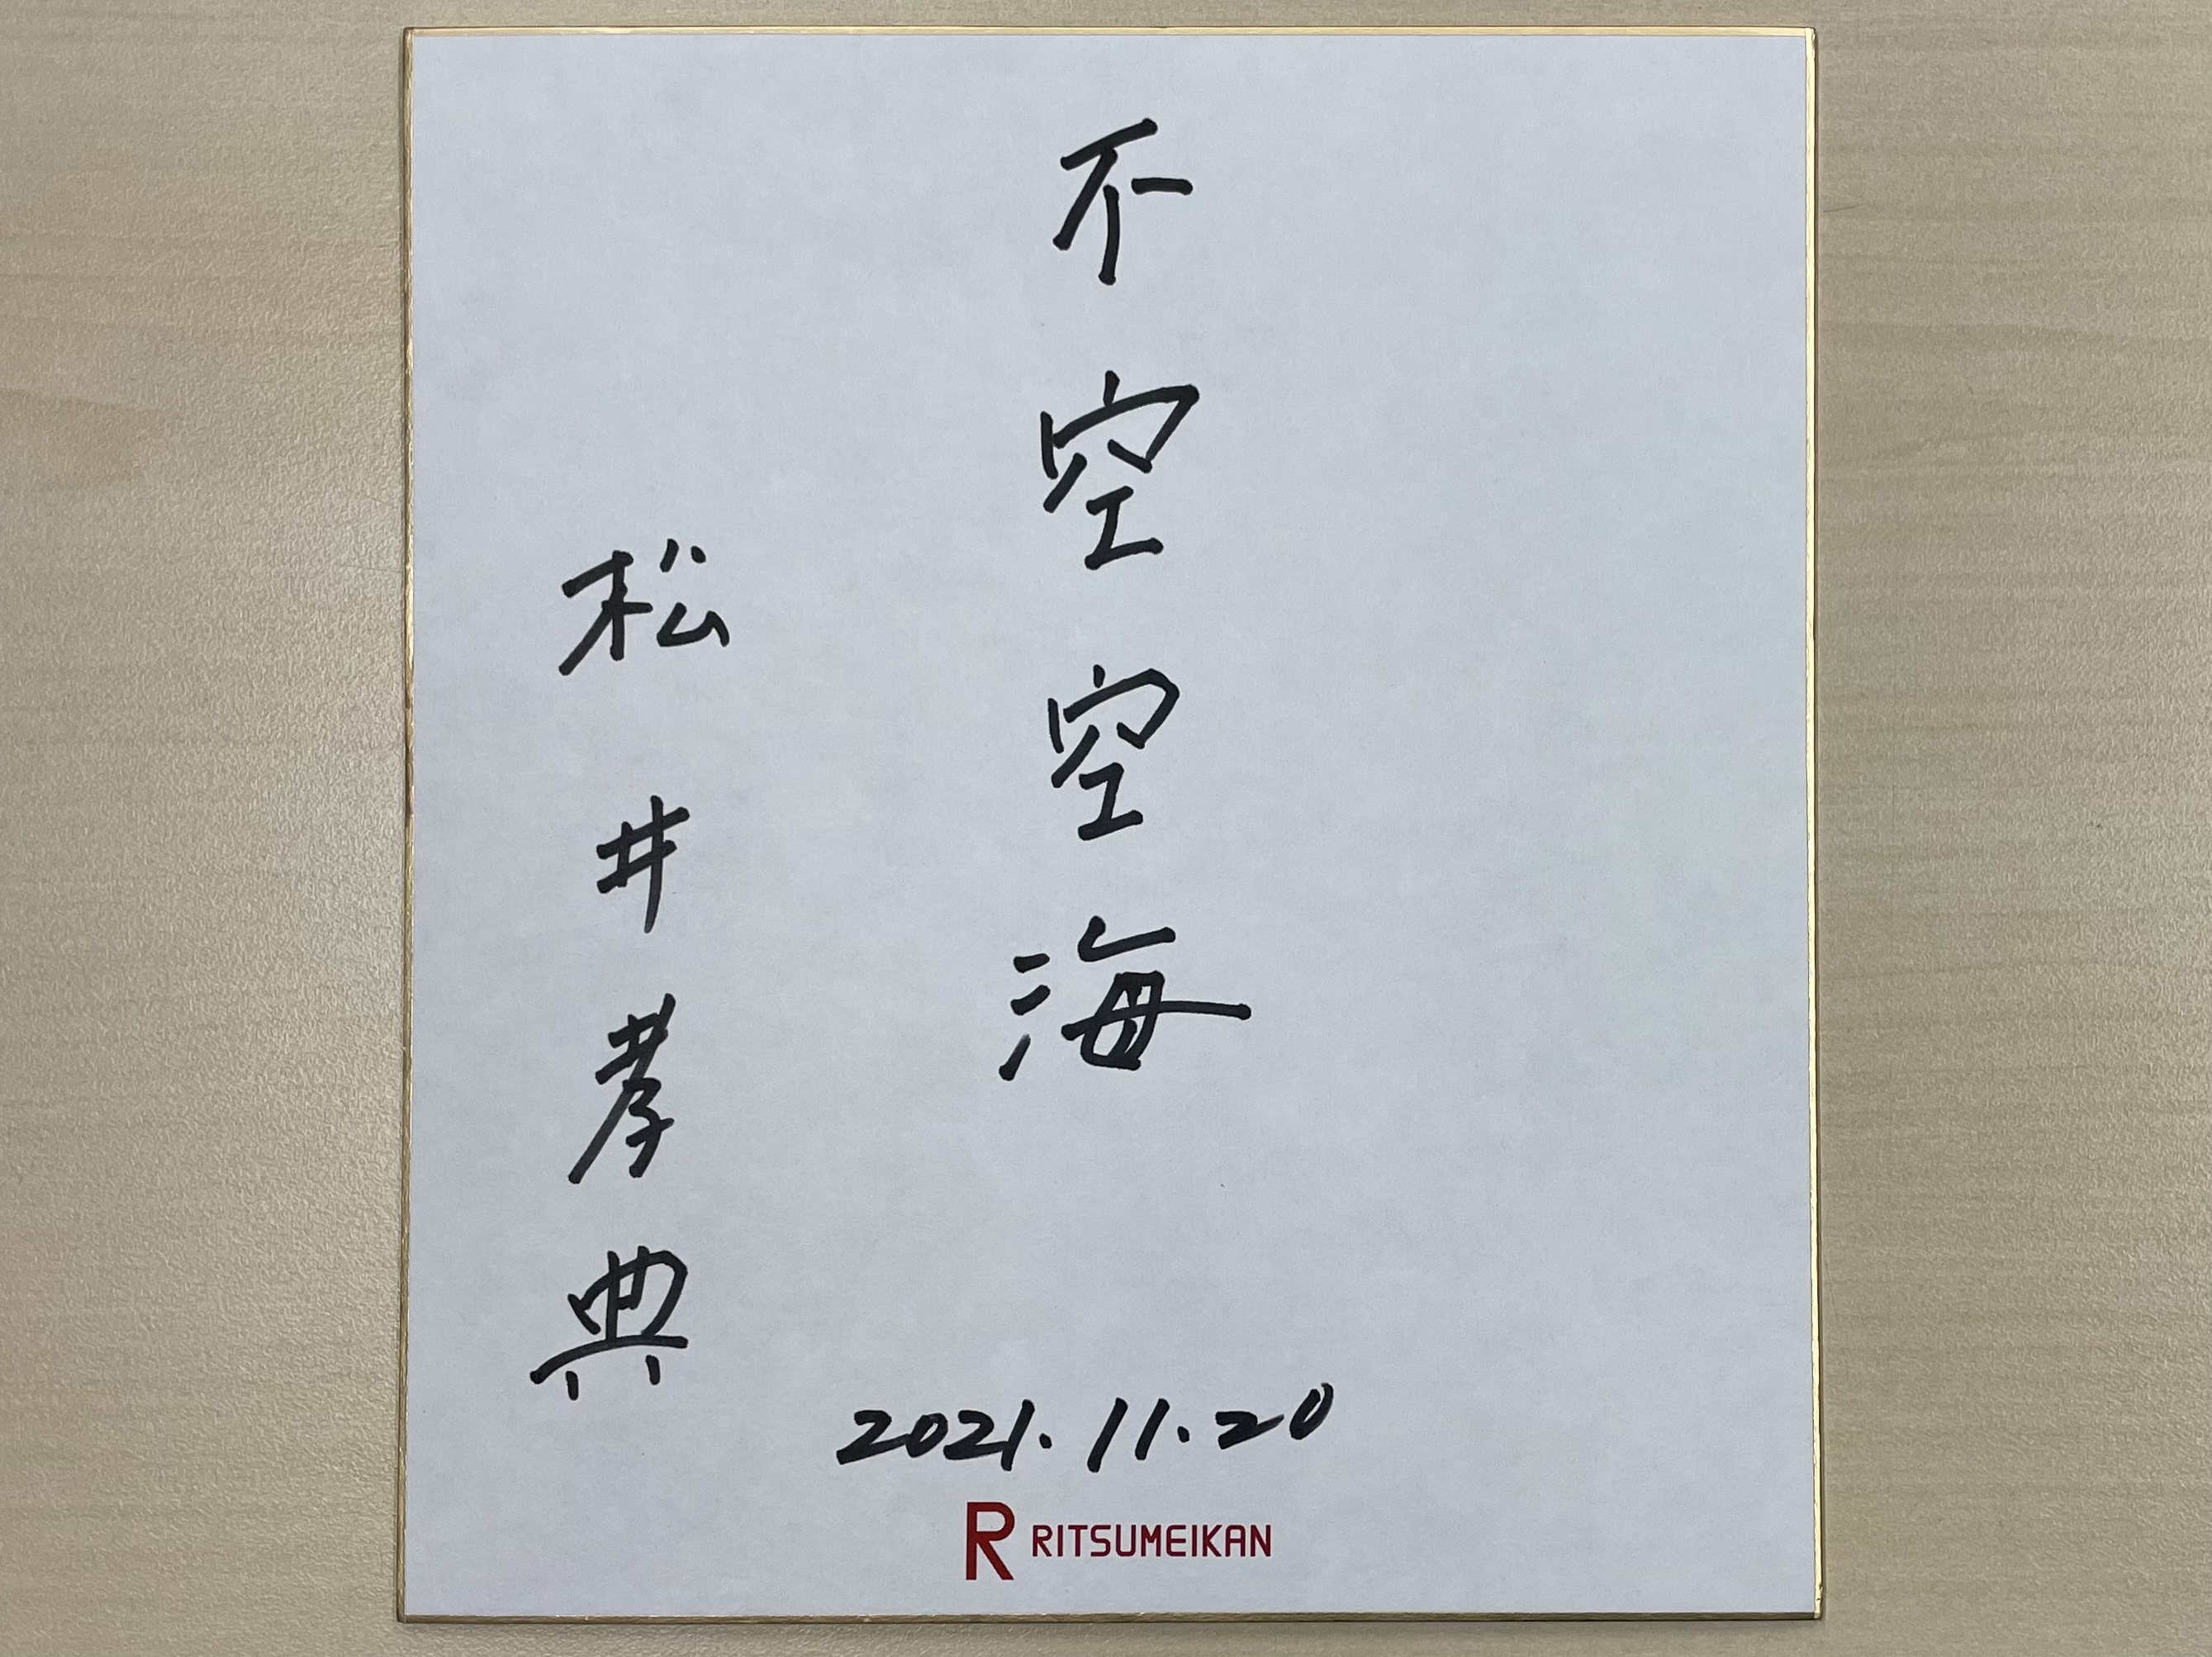 不空空海
松井孝典
2021.11.20
R RITSUMEIKAN